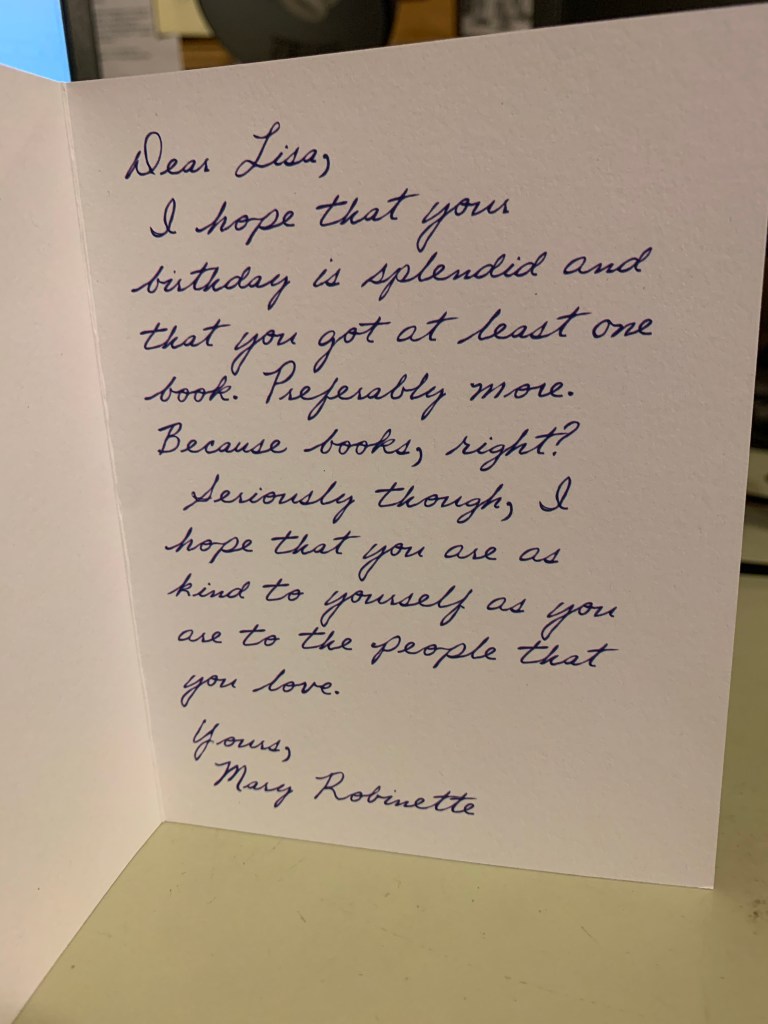 Dear Lisa,
I hope that your
birthday is splendid and
that you got at least one
book. Preferably more.
Because books, right?
Seriously though, I
hope that you are as
kind to yourself as you
are to the people that
you love.
Yours,
Mary Robinette